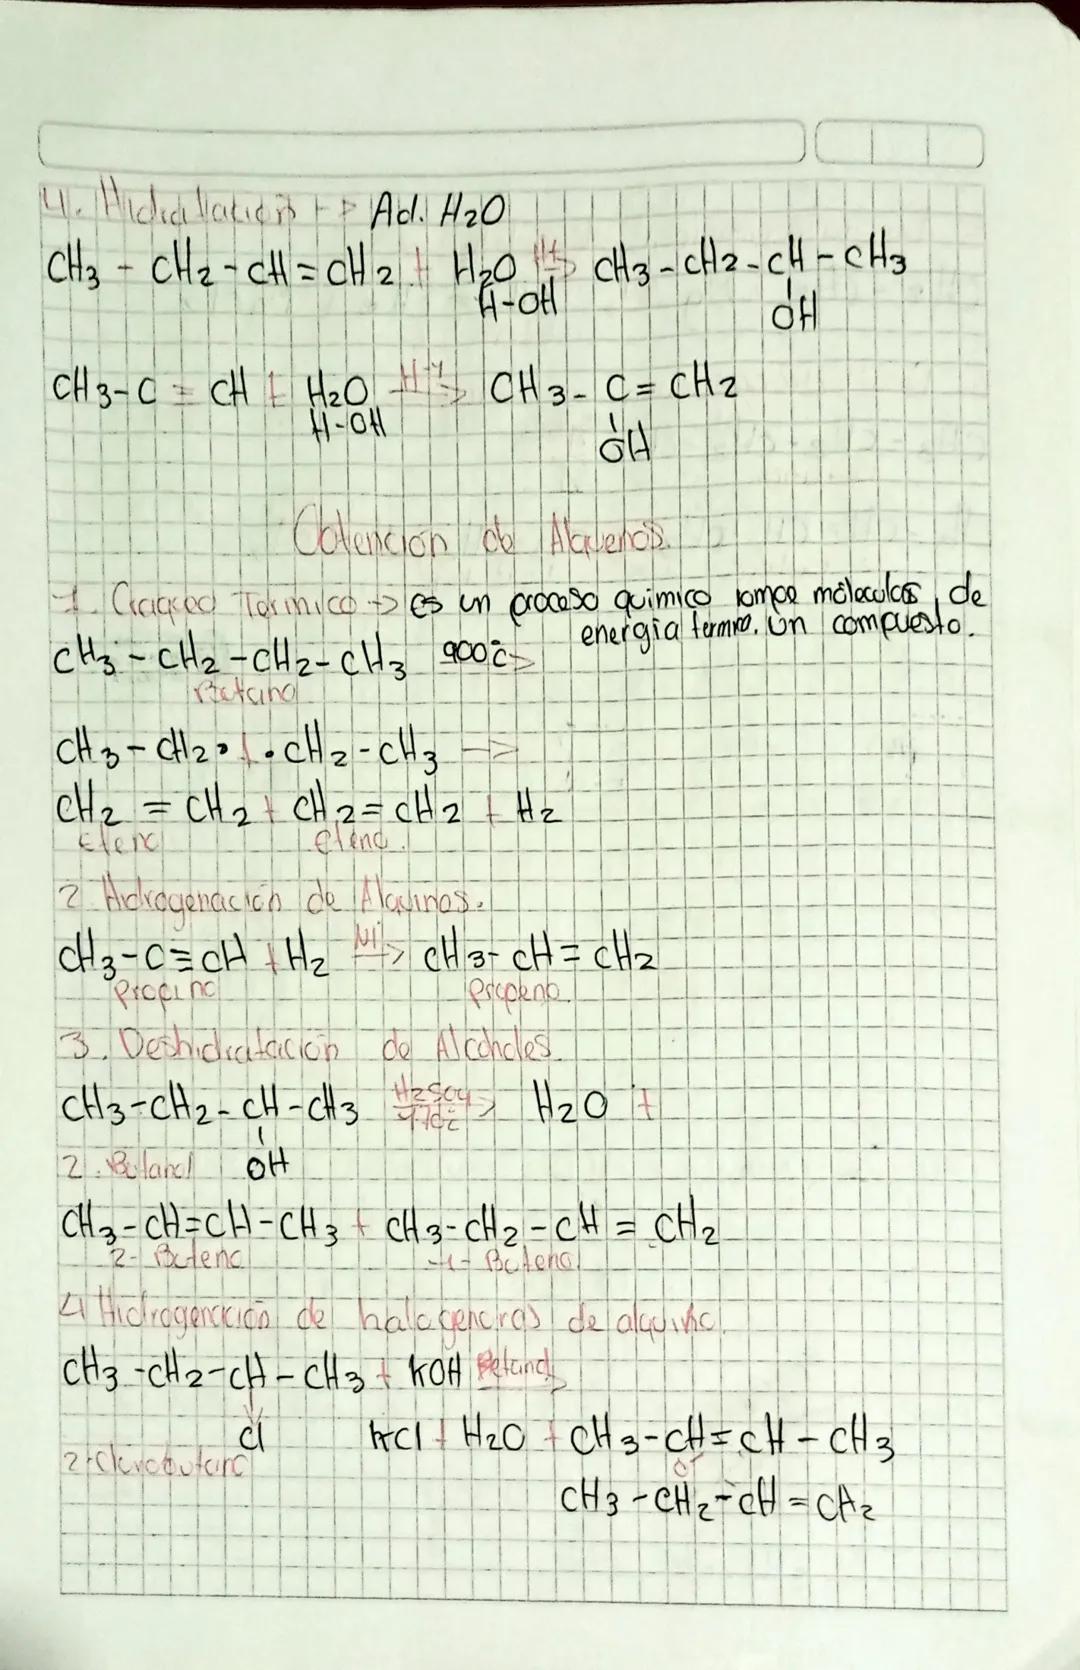 4. Hidratación → Ad. H2O
CH3 - CH2 - CH = CH2 + H2O H+→ CH3 - CH2 - CH - CH3
H-OH OH
CH3-C ≡ CH + H2O H+→ CH3 - C = CH2
H-OH OH
Obtención de Alquenos.
1. Craqueo Termico → es un proceso quimico rompe móleculas de
energía termica. Un compuesto.
CH3 - CH2 - CH2 - CH3 900°c→
Butano
CH3 - CH2• + •CH2 - CH3 →
CH2 = CH2 + CH2 = CH2 + H2
Eteno eteno.
2. Hidrogenación de Alquinos.
CH3-C≡CH + H2 Ni→ CH3-CH=CH2
Propino Propeno
3. Deshidratación de Alcoholes.
CH3-CH2-CH-CH3 H2SO4 → H2O +
2. Butanol OH
CH3-CH=CH-CH3 + CH3-CH2-CH=CH2
2- Buteno 1- Buteno
4 Hidrogenación de halogenoros de alquino.
CH3-CH2-CH-CH3 + KOH →
Cl KCl + H2O + CH3-CH=CH-CH3
2-Clorobutano or
CH3-CH2-CH=CH2